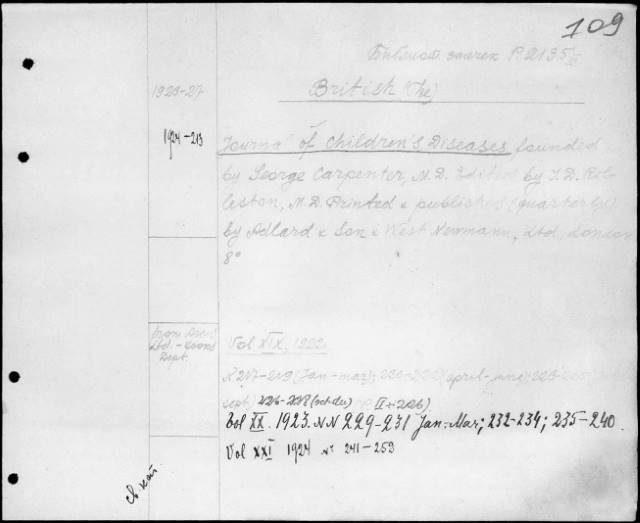 109
P 2135
British (The)
1923-27
1924-213
Journal of Children's Diseases, founded
by George Carpenter, M.D. Edited by J.D. Rol-
leston, M.D. Printed & published (quarterly)
by Adlard & Son & West Newmann, Ltd, London
8°
Ltd.
Dept.
Vol XIX, 1922.
N 217-219 (Jan-mar); (april-june);
226-228 (oct-dec) II+226)
Vol XX. 1923. N N 229-231 Jan-Mar; 232-234; 235-240.
Vol XXI 1924 N 241-253